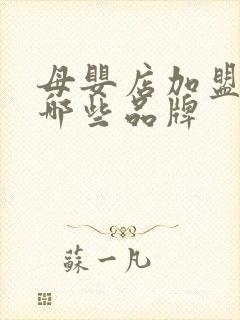 母嬰店加盟
哪些品牌
蘇一凡